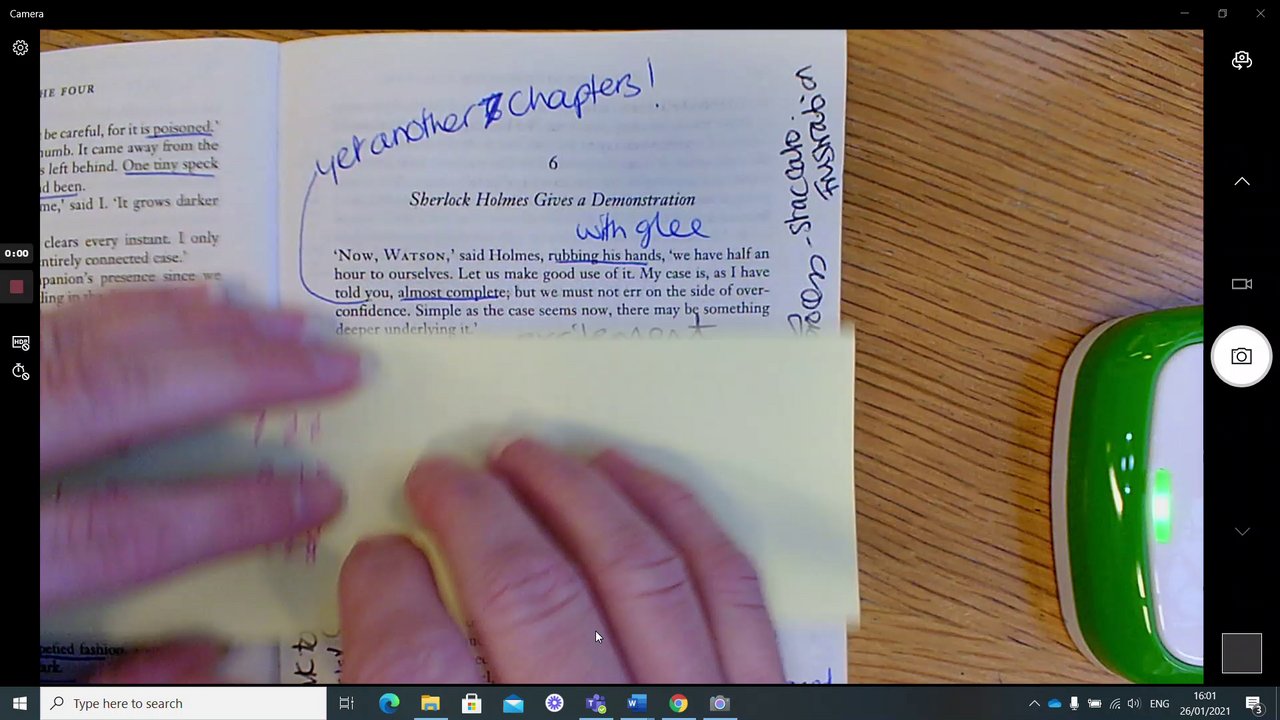 Camera
HE FOUR
be careful, for it is poisoned.'
umb. It came away from the
s left behind. One tiny speck
d been.
me,' said I. 'It grows darker
clears every instant. I only
ntirely connected case.'
panion's presence since we
yet another 7 chapters!
6
Sherlock Holmes Gives a Demonstration
with glee
'Now, WATSON,' said Holmes, rubbing his hands, 'we have half an
hour to ourselves. Let us make good use of it. My case is, as I have
told you, almost complete; but we must not err on the side of over-
confidence. Simple as the case seems now, there may be something
deeper underlying it.'
frustration
fashion.
0:00
Type here to search
ENG
16:01
26/01/2021
3